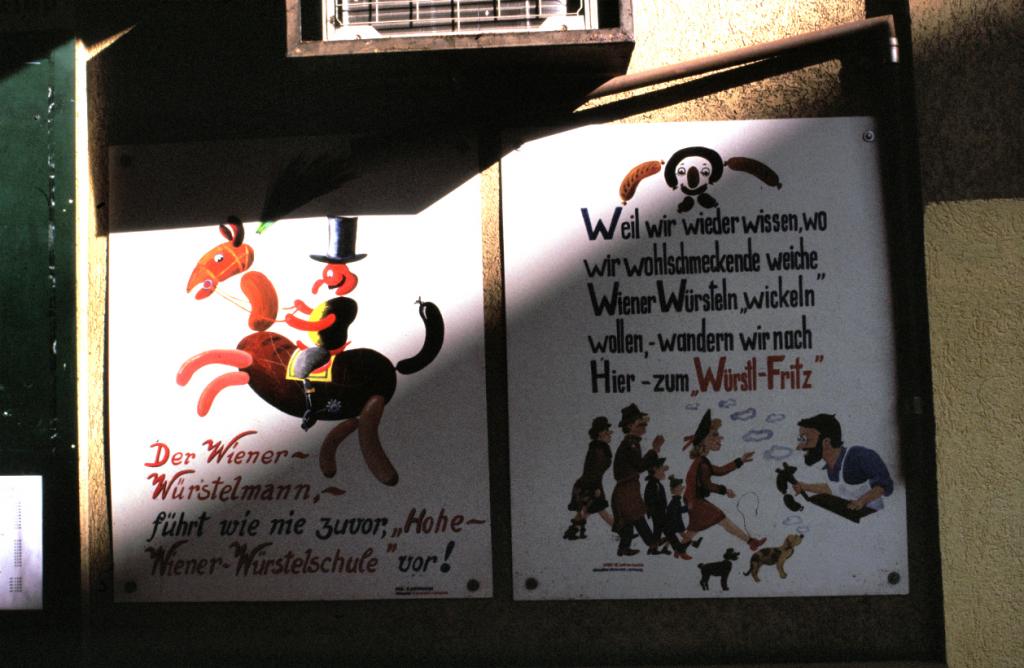 Der Wiener~
Würstelmann,~
führt wie nie zuvor, „Hohe~
Wiener-Würstelschule" vor!
Weil wir wieder wissen, wo
wir wohlschmeckende weiche
Wiener Würsteln „wickeln"
wollen,- wandern wir nach
Hier - zum „Würstl-Fritz"